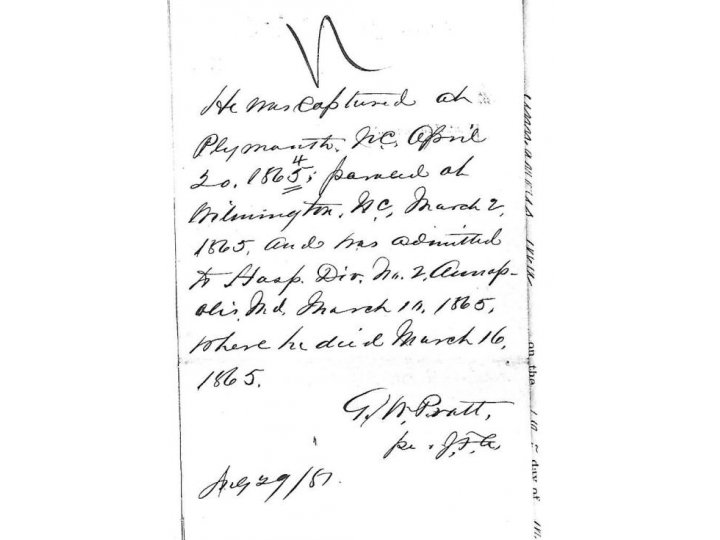 He was captured at
Plymouth, N.C. April
4
20, 1865; paroled at
Wilmington, N.C., March 2,
1865, and was admitted
to Hosp. Div. No. 2, Annap-
olis, Md. March 10, 1865,
where he died March 16,
1865.
G. W. Pratt,
per J.F.
29/81.
on the
day of